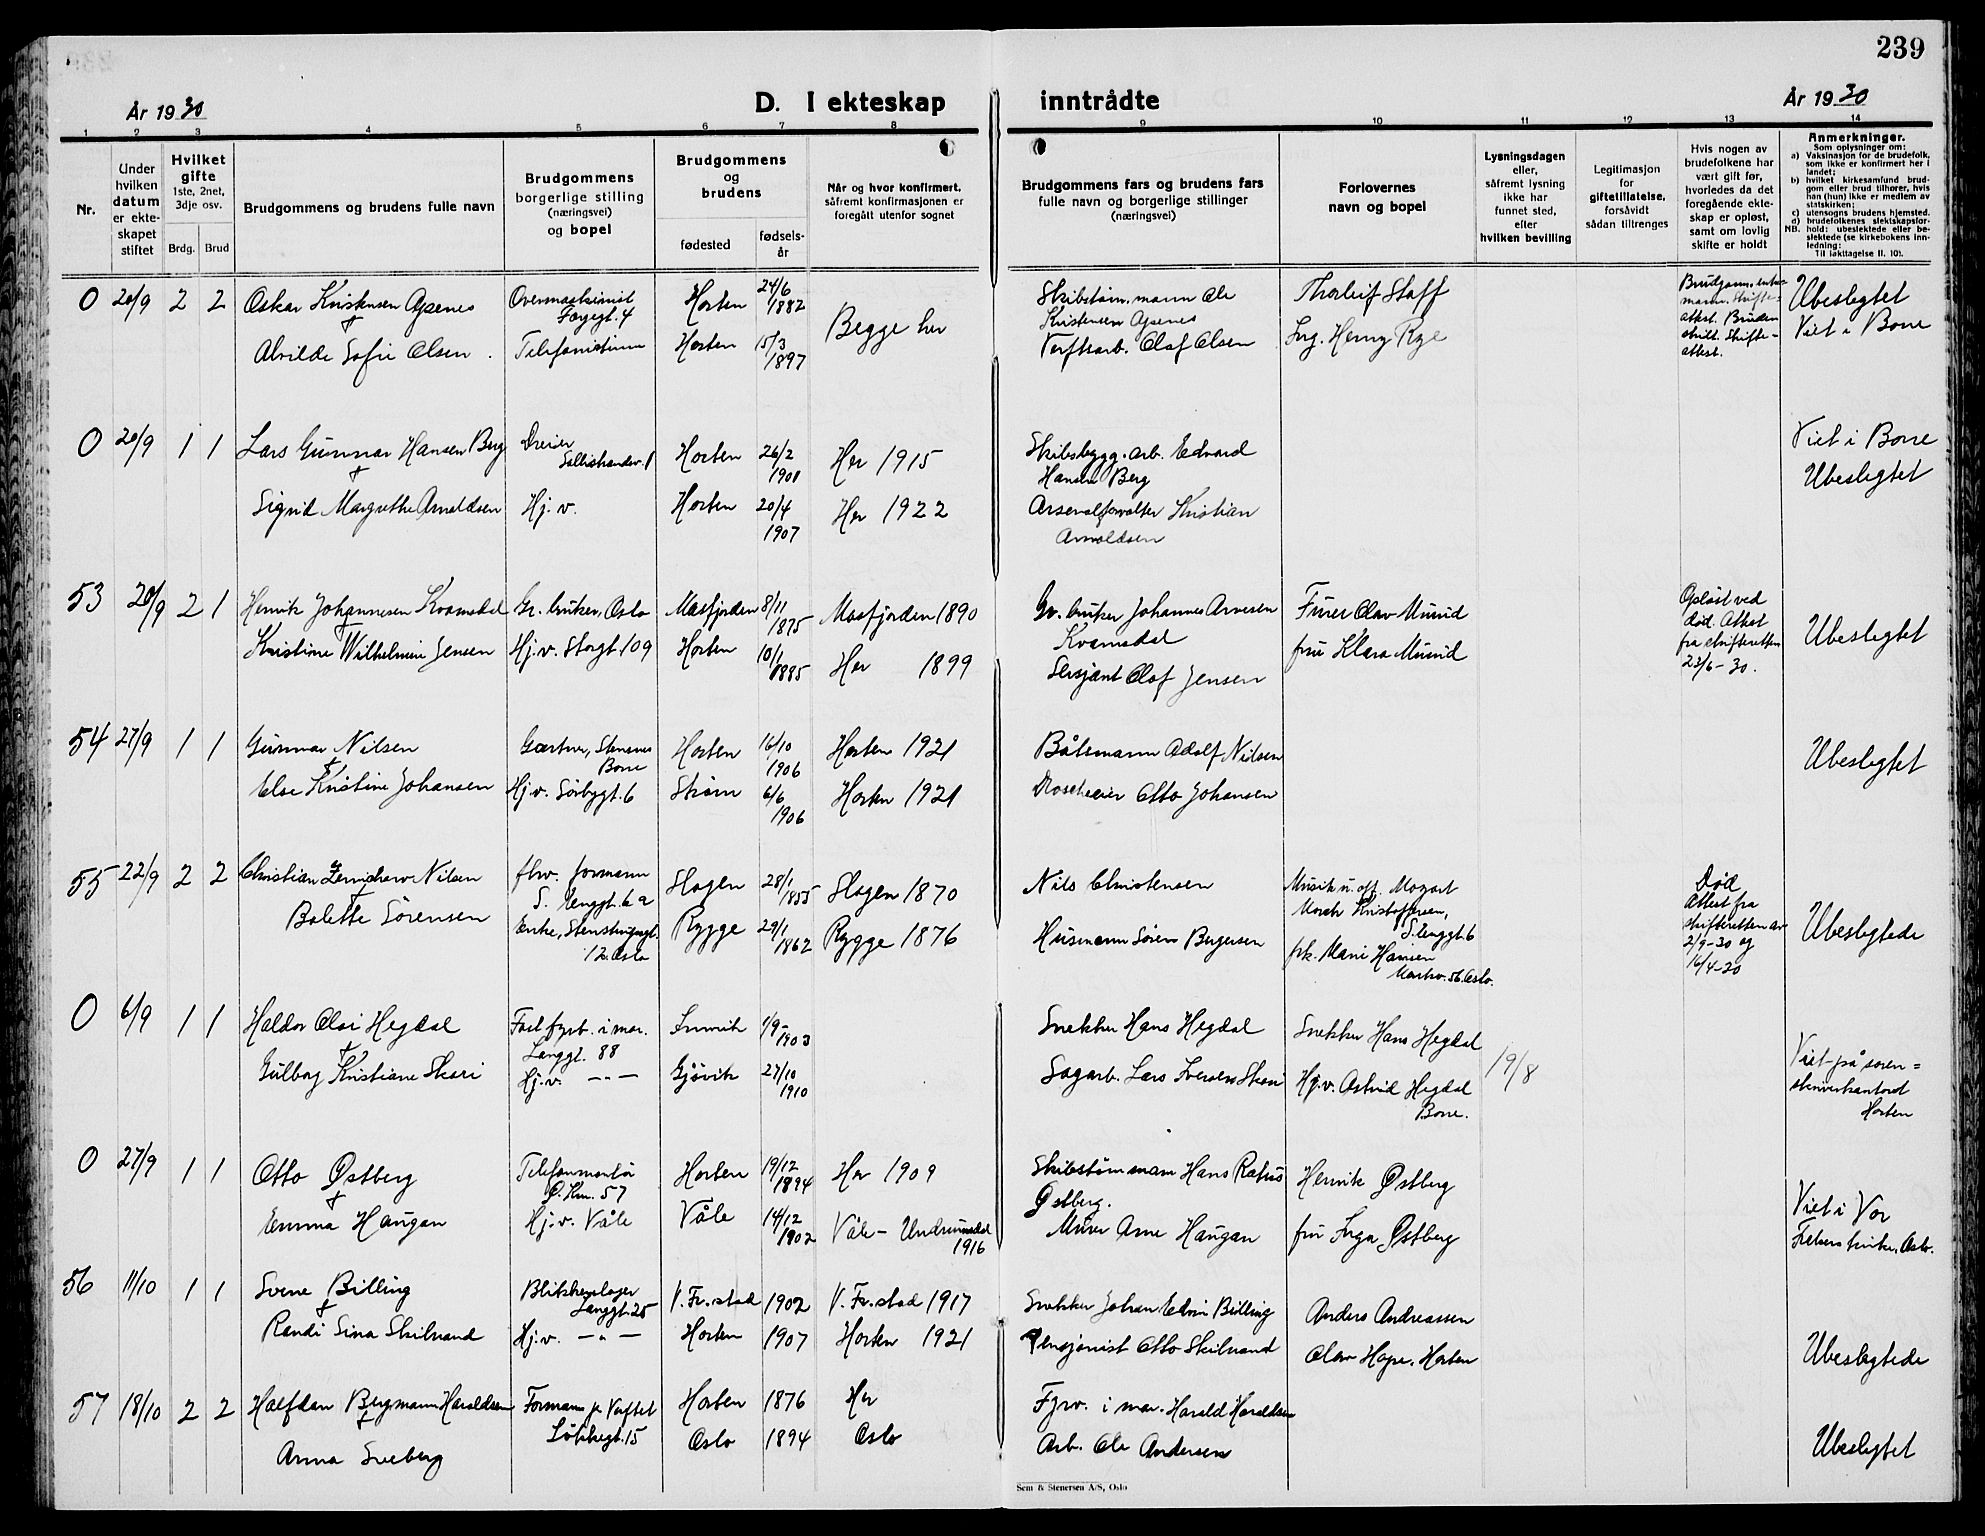 239
År 1930
D. I ekteskap inntrådte
År 1930
1 2 3 4 5 6 7 8 9 10 11 12 13 14
Nr.
Under
hvilken
datum
er ekte-
skapet
stiftet
Hvilket
gifte
1ste, 2net,
3dje osv.
Brdg. Brud
Brudgommens og brudens fulle navn
Brudgommens
borgerlige stilling
(næringsvei)
og bopel
Brudgommens
og
brudens
fødested
fødsels-
år
Når og hvor konfirmert,
såfremt konfirmasjonen er
foregått utenfor sognet
Brudgommens fars og brudens fars
fulle navn og borgerlige stillinger
(næringsvei)
Forlovernes
navn og bopel
Lysningsdagen
eller,
såfremt lysning
ikke har
funnet sted,
efter
hvilken bevilling
Legitimasjon
for
giftetillatelse,
forsåvidt
sådan tiltrenges
Hvis nogen av
brudefolkene har
vært gift før,
hvorledes da det
foregående ekte-
skap er opløst,
samt om lovlig
skifte er holdt
Anmerkninger.
Som oplysninger om:
a) Vaksinasjon for de brudefolk,
som ikke er konfirmert her i
landet;
b) hvilket kirkesamfund brud-
gom eller brud tilhører, hvis
han (hun) ikke er medlem av
statskirken;
c) utensogns brudens hjemsted.
d) brudefolkenes slektskapsfor-
NB. hold: ubeslektede eller be-
slektede (se kirkebokens inn-
ledning:
Til iakttagelse II. 10).
0 20/9 2 2 Oskar Kristensen Agsenes
Overmaskinist
Færgegt. 4
Horten 24/6
1882
Alvilde Sofie Olsen
Telefonistinne
Horten 15/3
1897
Begge her
Skibstøm. mann Ole
Kristensen Agsenes
Verftsarb. Olaf Olsen
Thorleif Staff
Ing. Henry Rye
Brudgom. enke-
mann. Skifte-
attest. Bruden
skilt. Skifte-
attest.
Ubeslegtet
Viet i Borre
0 20/9 1 1 Lars Gunnar Hansen Berg
Dreier
Horten 26/2
1901
Her 1915
Sigrid Margrethe Arnoldsen
Hj. v.
Horten 20/4
1907
Her 1922
Skibsbygg. arb. Edvard
Hansen Berg
Arsenalforvalter Kristian
Arnoldsen
Viet i Borre
Ubeslegtet
53 20/9 2 1 Henrik Johannesen Kvamsdal
Gr. bruker, Oslo
Masfjorden 8/11
1875
Masfjorden 1890
Kristine Wilhelmine Jensen
Hj. v. Storgt. 109
Horten 10/1
1885
Her 1899
Gr. bruker Johannes Arvesen
Kvamsdal
Sersjant Olaf Jensen
Furer Olav Musid
fru Klara Musid
Opløst ved
død. Attest
fra skifteretten
23/6-30.
Ubeslegtet
54 27/9 1 1 Gunnar Nilsen
Gartner, Stensnes
Borre
Horten 16/10
1906
Horten 1921
Else Kristine Johansen
Hj. v. Sørbygt. 6
Strøm 6/6
1906
Horten 1921
Båtsmann Adolf Nilsen
Otto Johansen
Ubeslegtet
55 22/9 2 2 Christian Nilsen
fhv. formann
S. Enggt. 6 a
Slagen 28/1
1855
Slagen 1870
Bolette Sørensen
Enke,
12. Oslo
Rygge 29/1
1862
Rygge 1876
Nils Christensen
Husmann Søren Bergersen
Musik u. off. Mozart
Morch Kristoffersen,
S. Enggt. 6
frk. Marie Hansen
56. Oslo.
Død
Attest fra
skifteretten av
2/9-30 og
16/4-20
Ubeslegtede
0 6/9 1 1 Haldor Olai Hegdal
Fast fyrb. i mar.
Langgt. 88
1/9-
1903
Gulborg Kristiane Skari
Hj. v. - " -
Gjøvik 27/10
1910
Snekker Hans Hegdal
Sagarb. Lars Iversen Skari
Snekker Hans Hegdal
Hj. v. Astrid Hegdal
Borre.
19/8
Viet på soren=
skriverkontoret
Horten
0 27/9 1 1 Otto Østberg
Telefonmontør
57
Horten 19/12
1894
Her 1909
Emma Haugan
Hj. v. Våle
Våle 14/12
1902
Våle - Undrumsdal
1916
Skibstømmann Hans
Østberg.
Murer Arne Haugan
Henrik Østberg
fru Inga Østberg
Viet i Vor
Frelsers kirke, Oslo.
56 11/10 1 1 Sverre Billing
Blikkenslager
Langgt. 25
V. Fr.stad 1902
V. Fr.stad 1917
Randi Sina Skilvand
Hj. v. - " -
Horten 1907
Horten 1921
Snekker Johan Edvin Billing
Pensjonist Otto Skilvand
Anders Andreassen
Olav Hope, Horten
Ubeslegtede
57 18/10 2 2 Halfdan Bergmann Haraldsen
Formann p. Verftet
Løkkegt. 15
Horten 1876
Her
Anna Sveberg
Oslo 1894
Oslo
Fyrv. i mar. Harald Haraldsen
Arb. Ole Andersen
Ubeslegtet
Sem & Stenersen A/S, Oslo